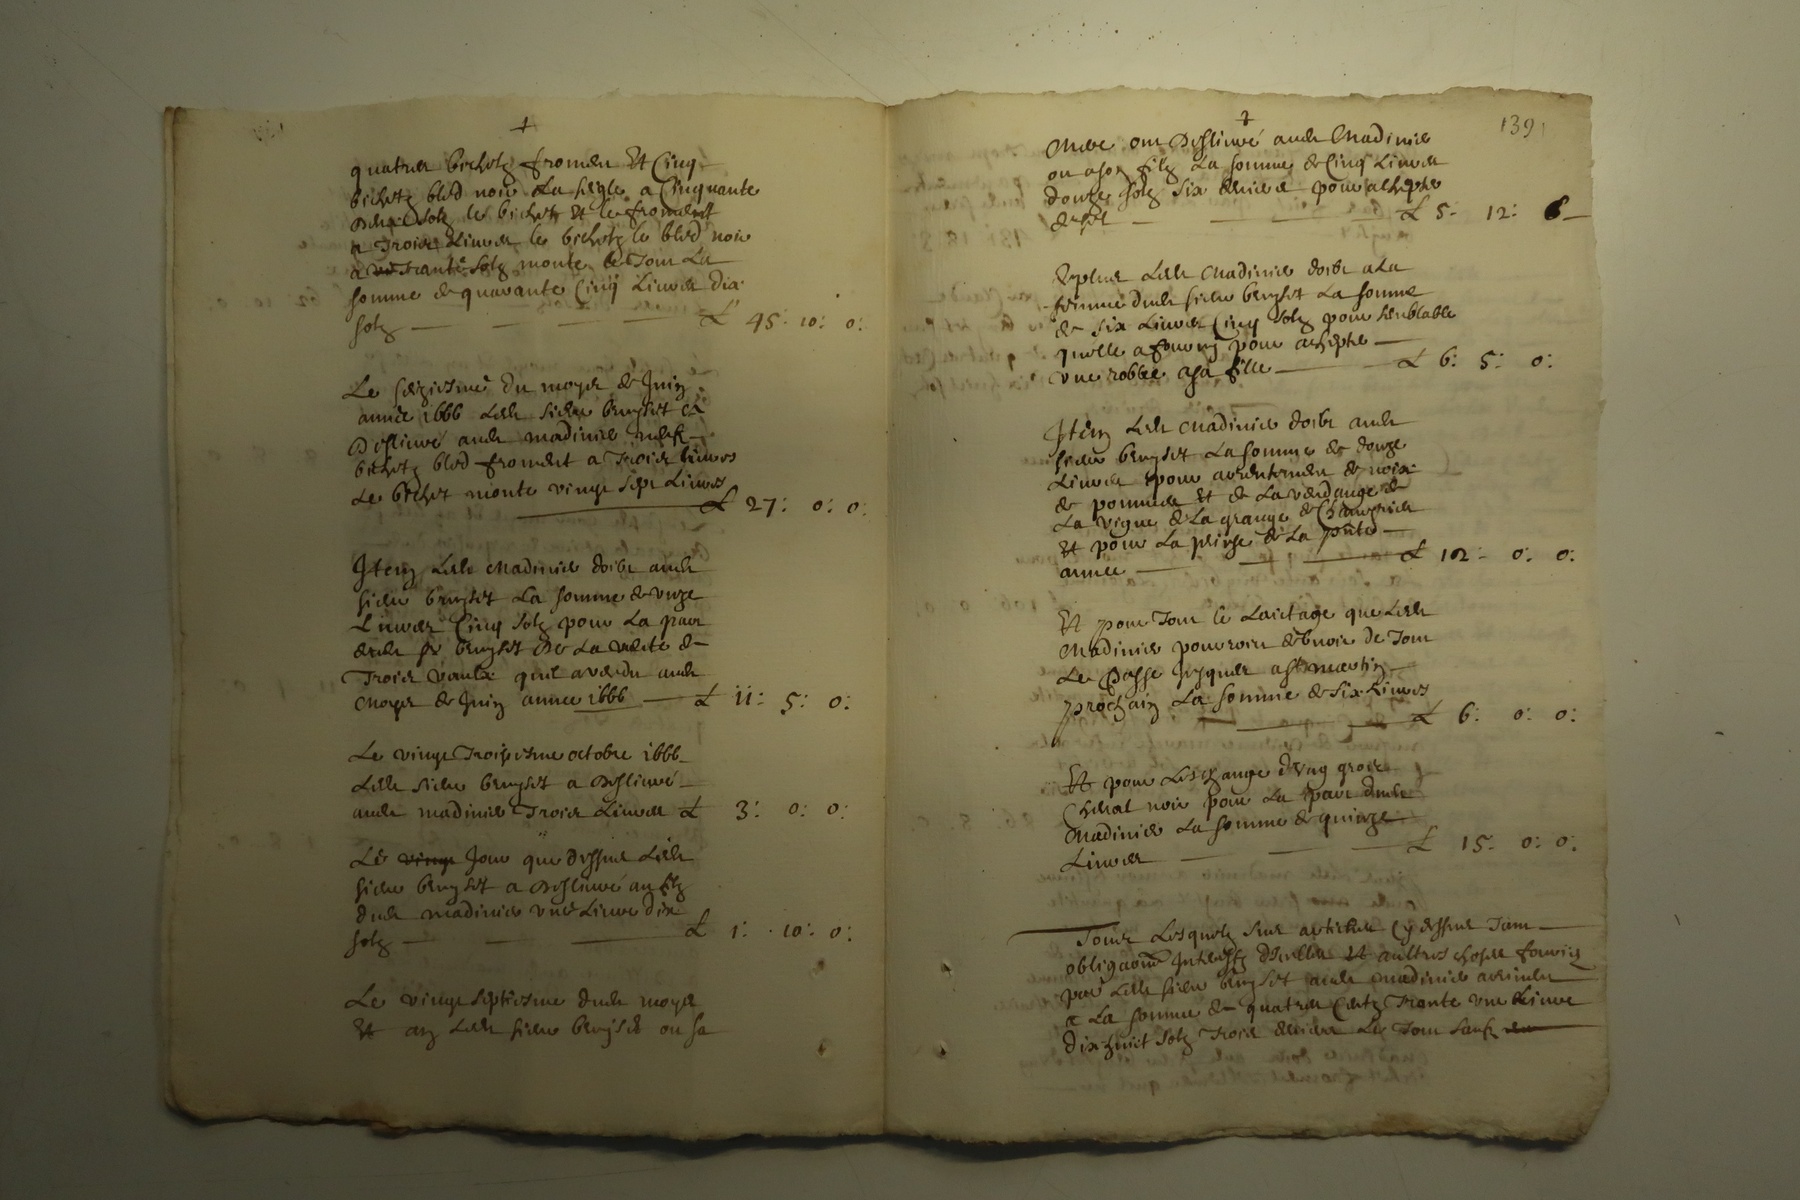 quatres bichetz froment Et Cinq
bichetz bled noir La seigle a Cinquante
solz le bichet Et le froment
a Trois Livres le bichetz le bled noir
a Trante solz monte le Tout La
somme de quarante Cinq Livres dix
solz £ 45: 10: 0:
Le seziesme du moys de Juin
année 1666 Ledt sieur bruyset a
Deslivré audt madinier neufz
bichetz bled froment a Trois livres
Le bichet monte vingt sept Livres
£ 27: 0: 0:
Item Ledt Madinier doibt audt
sieur bruyset La somme de unze
Livres Cinq solz pour La part
dudt sr bruyset De La vante de
Trois veaulx quil a vendu audt
Moys de Juin annee 1666 £ 11: 5: 0:
Le vingt Troisiesme octobre 1666
Ledt sieur bruyset a Deslivré
audt madinier Trois Livres £ 3: 0: 0:
Le vingt Jour que dessus Ledt
sieur bruyset a Deslivré au filz
dudt madinier une Livre dix
solz £ 1: 10: 0:
Le vingt septiesme dudt moys
Et an Ledt sieur bruyset ou sa
139
Mere ont Deslivré audt Madinier
ou a son filz La somme de Cinq Livres
douze solz six deniers pour achepter
de £ 5: 12: 6
Et plus Ledt Madinier doibt a La
femme dudt sieur bruyset La somme
de six Livres Cinq solz pour semblable
quelle a fourny pour achepter
une robbe a sa fille £ 6: 5: 0:
Item Ledt Madinier doibt audt
sieur bruyset La somme de douze
Livres pour de noix
de pommes Et de La vendange de
La vigne de La grange de
Et pour La prinse de La pnte
annee £ 12: 0: 0:
Et pour Tout le Laictage que Ledt
Madinier pourroit debvoir de Tout
Le Passe Jusques a st martin
prochain La somme de six Livres
£ 6: 0: 0:
Et pour Leschange dung gros
Cheval noir pour La part dudt
Madinier La somme de quinze
Livres £ 15: 0: 0:
Tous Lesquelz sus articles Cy dessus Tant
obligaons Interestz Et aultres choses fournis
par Ledt sieur bruyset audt madinier arrivent
a La somme de quatres Centz Trante une Livre
dix huict solz Trois deniers Le Tout sauf